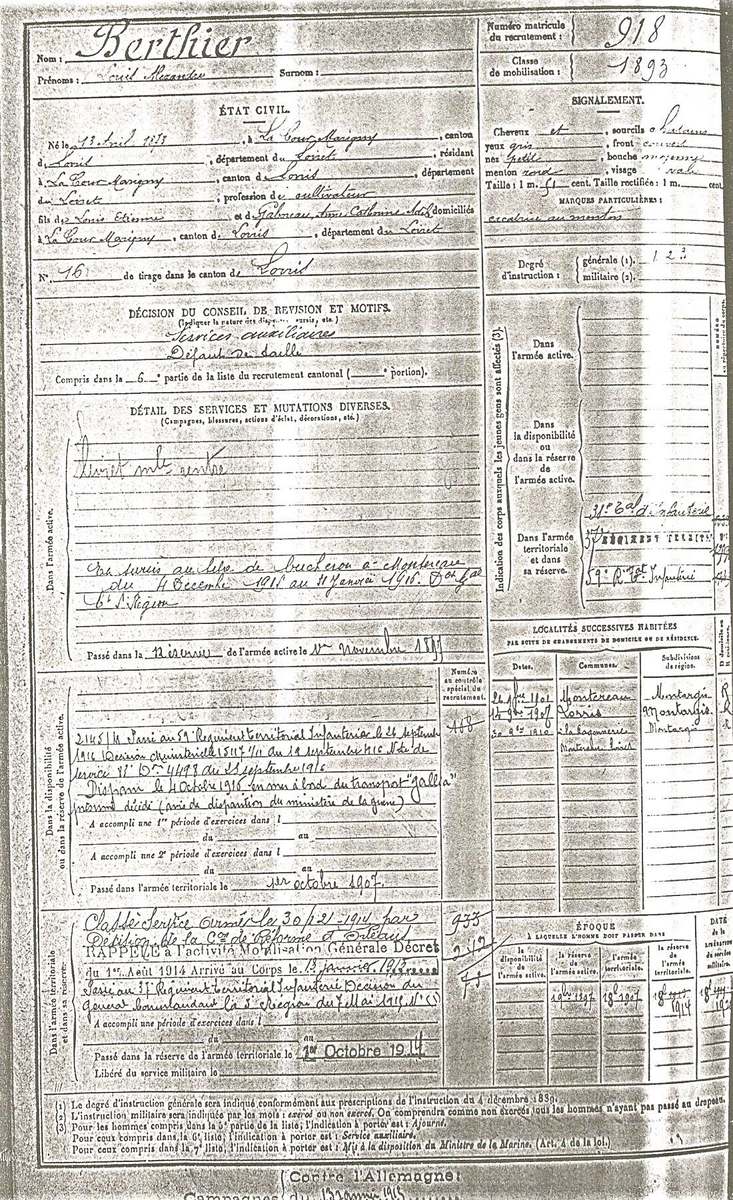 Nom : Berthier
Prénoms : Louis Alexandre Surnom :
Numéro matricule du recrutement : 918
Classe de mobilisation : 1893
ÉTAT CIVIL.
Né le 13 Avril 1873, à La Cour Marigny, canton
d Lorris, département du Loiret, résidant
à La Cour Marigny, canton de Lorris, département
du Loiret, profession de cultivateur
fils de Louis Etienne et de Gabneau, Anne Catherine domiciliés
à La Cour Marigny, canton de Lorris, département du Loiret
N° 16 de tirage dans le canton de Lorris
SIGNALEMENT.
Cheveux et sourcils chatains
yeux gris, front couvert
nez petit, bouche moyenne
menton rond, visage ovale
Taille : 1 m. 51 cent. Taille rectifiée : 1 m. cent.
MARQUES PARTICULIÈRES :
cicatrice au menton
Degré d'instruction : générale (1). 1 2 3
militaire (2).
DÉCISION DU CONSEIL DE RÉVISION ET MOTIFS.
Services auxiliaires
Défaut de taille
Compris dans la 6e partie de la liste du recrutement cantonal ( e portion).
DÉTAIL DES SERVICES ET MUTATIONS DIVERSES.
(Campagnes, blessures, actions d'éclat, décorations, etc.)
Dans l'armée active.
Livret mle rentré
En sursis au titre de bucheron à Montereau
du 4 Decembre 1915 au 31 Janvier 1916.
Région
Passé dans la Réserve de l'armée active le 1er novembre 1897
Indication des corps auxquels les jeunes gens sont affectés (3).
Dans l'armée active.
Dans la disponibilité ou dans la réserve de l'armée active.
Dans l'armée territoriale et dans sa réserve.
d'Infanterie
37e RÉGIMENT TERRIT
59e R. Tal Infanterie
LOCALITÉS SUCCESSIVES HABITÉES
PAR SUITE DE CHANGEMENTS DE DOMICILE OU DE RÉSIDENCE.
Dates. Communes. Subdivisions de région. D domicile ou R résidence.
1901 Montereau Montargis R
1907 Lorris Montargis R
1910 Montargis
Montereau Loiret
Dans la disponibilité ou dans la réserve de l'armée active.
Numéro au contrôle spécial du recrutement.
168
Passé au 59e Regiment Territorial Infanterie le 26 septembre
1916 Decision Ministerielle 15117 1/11 du 19 septembre 1916 Note de
service 4498 du 25 septembre 1916
Disparu le 4 Octobre 1916 en mer à bord du transport "Gallia"
présumé décédé (avis de disparition du ministère de la guerre)
A accompli une 1re période d'exercices dans l
du au
A accompli une 2e période d'exercices dans l
du au
Passé dans l'armée territoriale le 1er octobre 1907
Dans l'armée territoriale et dans sa réserve.
Classé Service Armé le 30 1914 par
Décision de la Con de Réforme d'Orléans
RAPPELÉ à l'activité Mobilisation Générale Décret
du 1er Août 1914 Arrivé au Corps le 13 janvier 1915
Passé au 37 Regiment Territorial Infanterie Decision du
General Commandant la 5e Region du 7 Mai 1915
A accompli une période d'exercices dans l
du au
Passé dans la réserve de l'armée territoriale le 1er Octobre 1914
Libéré du service militaire le
ÉPOQUE
À LAQUELLE L'HOMME DOIT PASSER DANS
la disponibilité de l'armée active. la réserve de l'armée active. l'armée territoriale. la réserve de l'armée territoriale. DATE de la libération du service militaire.
1897 1907 1914
(1) Le degré d'instruction générale sera indiqué conformément aux prescriptions de l'instruction du 4 décembre 1889.
(2) L'instruction militaire sera indiquée par les mots : exercé ou non exercé. On comprendra comme non exercés tous les hommes n'ayant pas passé au drapeau.
(3) Pour les hommes compris dans la 5e partie de la liste, l'indication à porter est : Ajourné.
Pour ceux compris dans la 6e liste, l'indication à porter est : Service auxiliaire.
Pour ceux compris dans la 7e liste, l'indication à porter est : Mis à la disposition du Ministre de la Marine. (Art. 4 de la loi.)
Contre l'Allemagne:
Campagnes du 13 janvier 1915